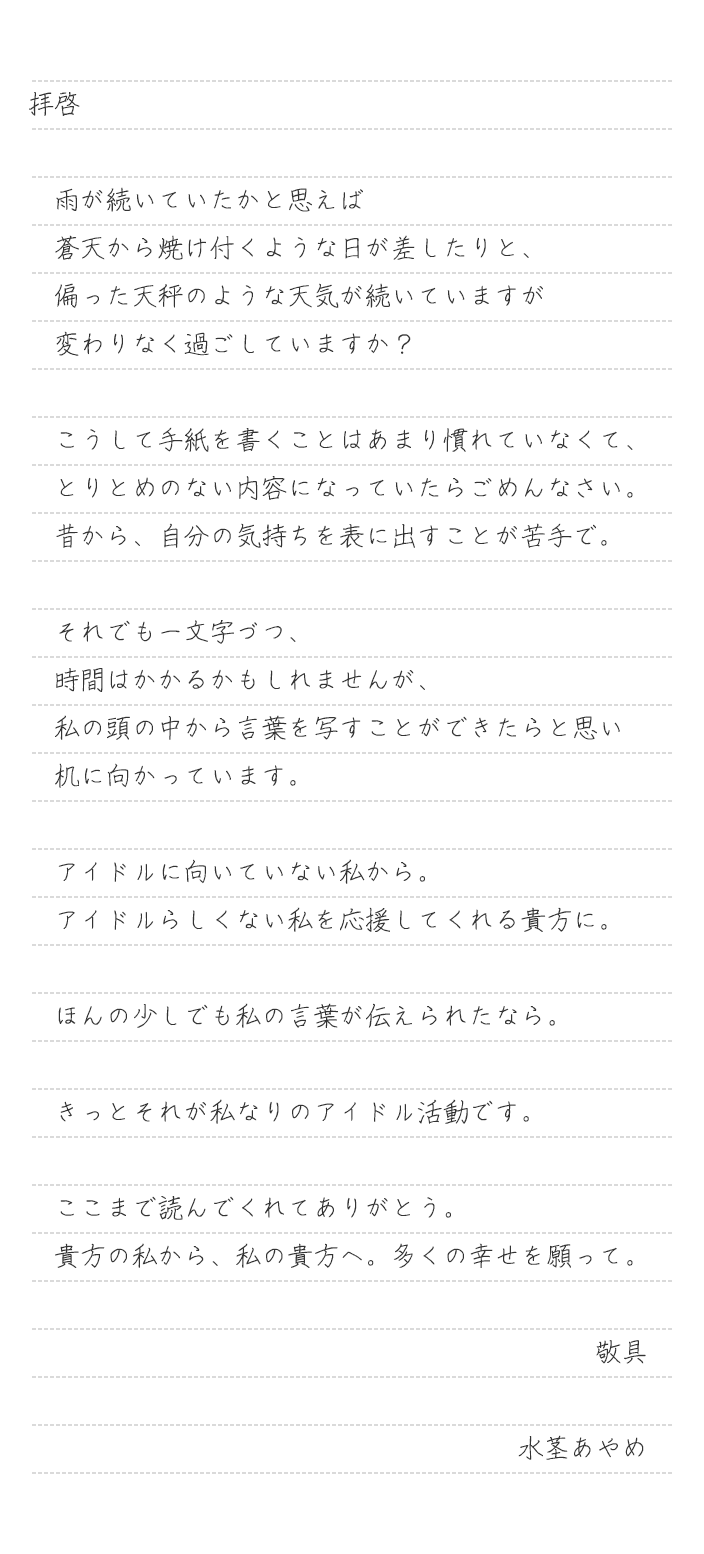 拝啓
雨が続いていたかと思えば
蒼天から焼け付くような日が差したりと、
偏った天秤のような天気が続いていますが
変わりなく過ごしていますか？
こうして手紙を書くことはあまり慣れていなくて、
とりとめのない内容になっていたらごめんなさい。
昔から、自分の気持ちを表に出すことが苦手で。
それでも一文字づつ、
時間はかかるかもしれませんが、
私の頭の中から言葉を写すことができたらと思い
机に向かっています。
アイドルに向いていない私から。
アイドルらしくない私を応援してくれる貴方に。
ほんの少しでも私の言葉が伝えられたなら。
きっとそれが私なりのアイドル活動です。
ここまで読んでくれてありがとう。
貴方の私から、私の貴方へ。多くの幸せを願って。
敬具
水茎あやめ